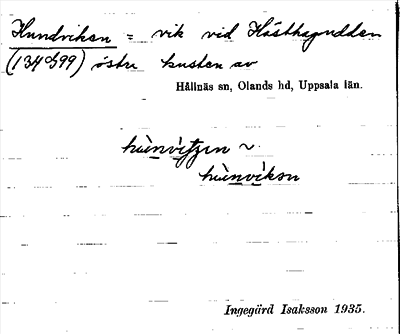 Hundviken = vik vid Hästhagudden
(134 G99) östra kusten av
Hållnäs sn, Olands hd, Uppsala län.
hùnvitʒɩn ~
hùnvikən
Ingegärd Isaksson 1935.